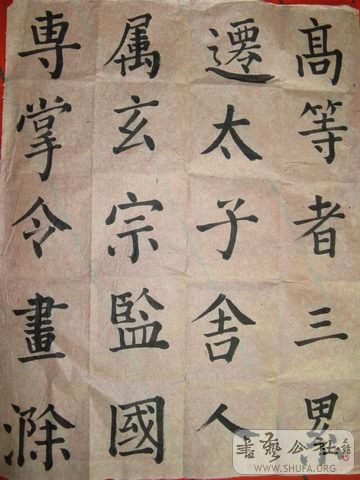 高等者三累
遷太子舍人
属玄宗監國
專掌令畫滌
書藝公社
WWW.SHUFA.ORG